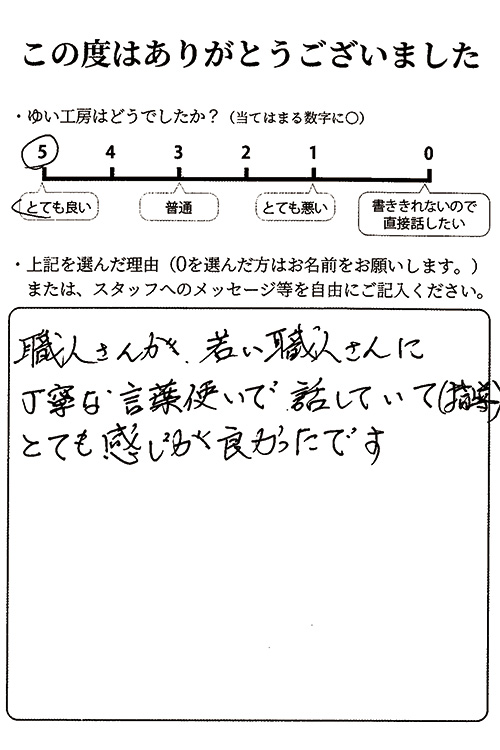 この度はありがとうございました
・ゆい工房はどうでしたか？（当てはまる数字に〇）
5 4 3 2 1 0
とても良い 普通 とても悪い 書ききれないので
直接話したい
・上記を選んだ理由（0を選んだ方はお名前をお願いします。）
または、スタッフへのメッセージ等を自由にご記入ください。
職人さんが、若い職人さんに
丁寧な言葉使いで話していて(指導)
とても感じが良かったです